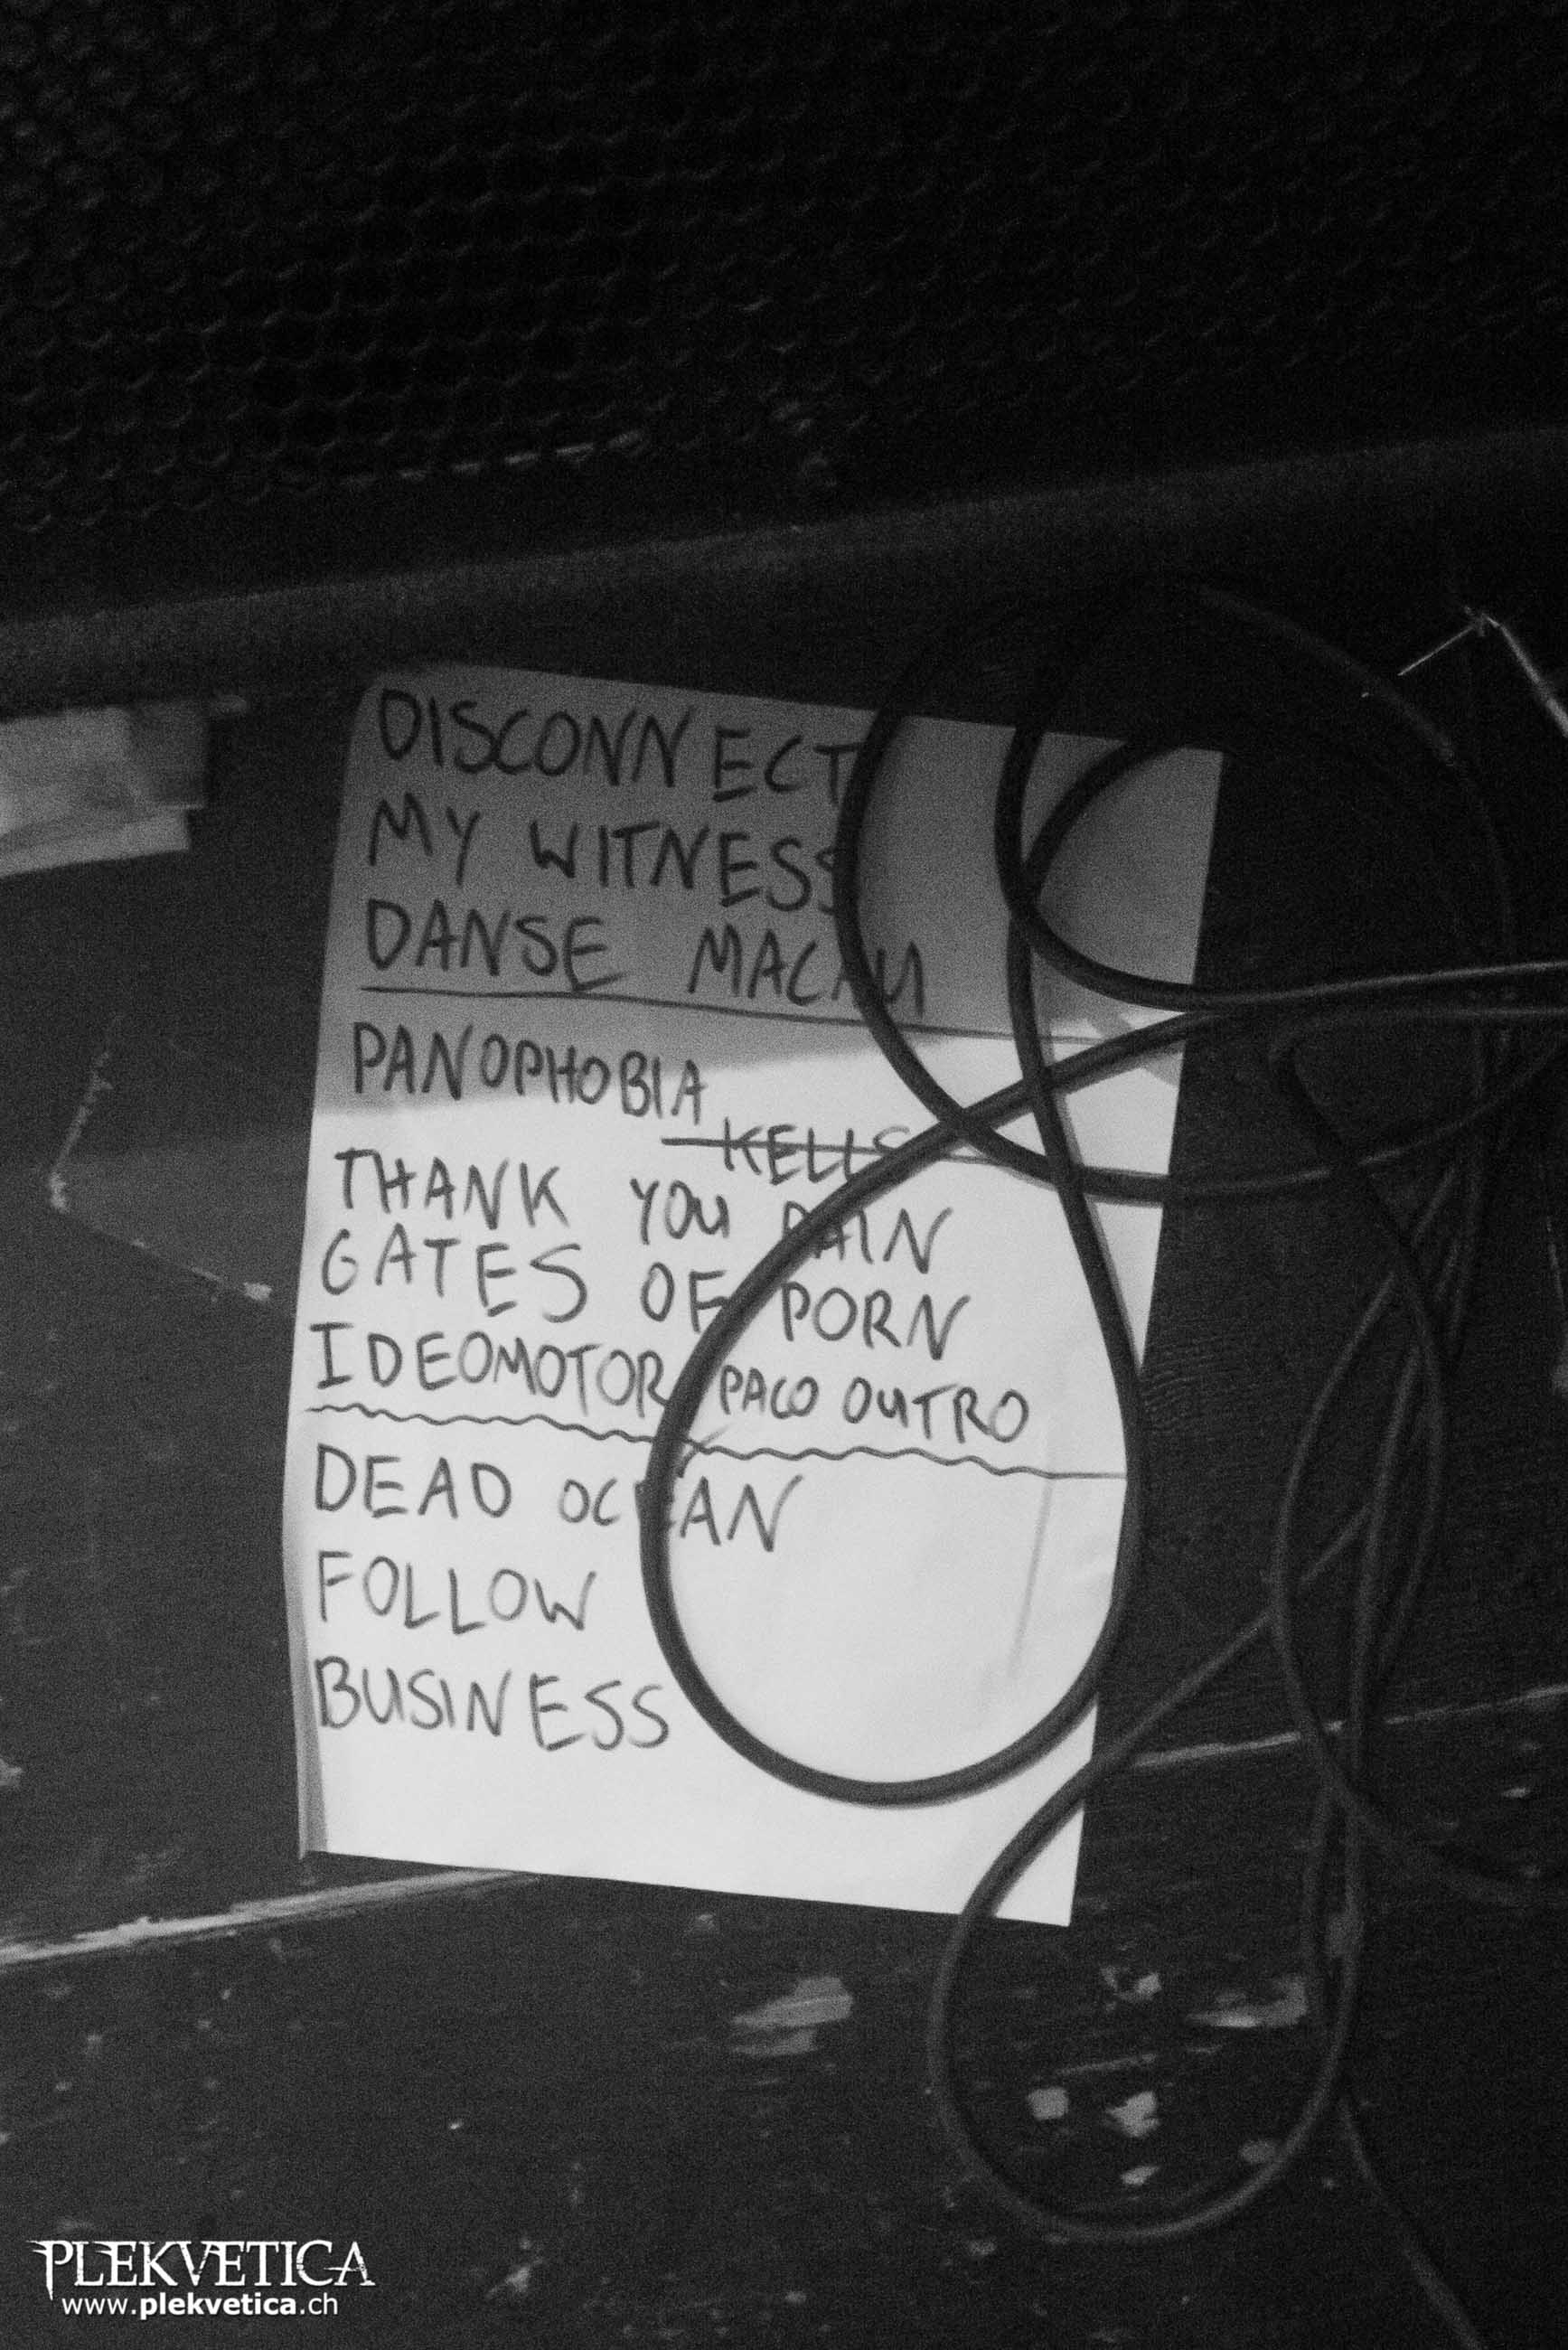 DISCONNECT
MY WITNESS
DANSE MACAU
PANOPHOBIA
KELLS
THANK YOU PAIN
GATES OF PORN
IDEOMOTOR PACO OUTRO
DEAD OCEAN
FOLLOW
BUSINESS
PLEKVETICA
www.plekvetica.ch